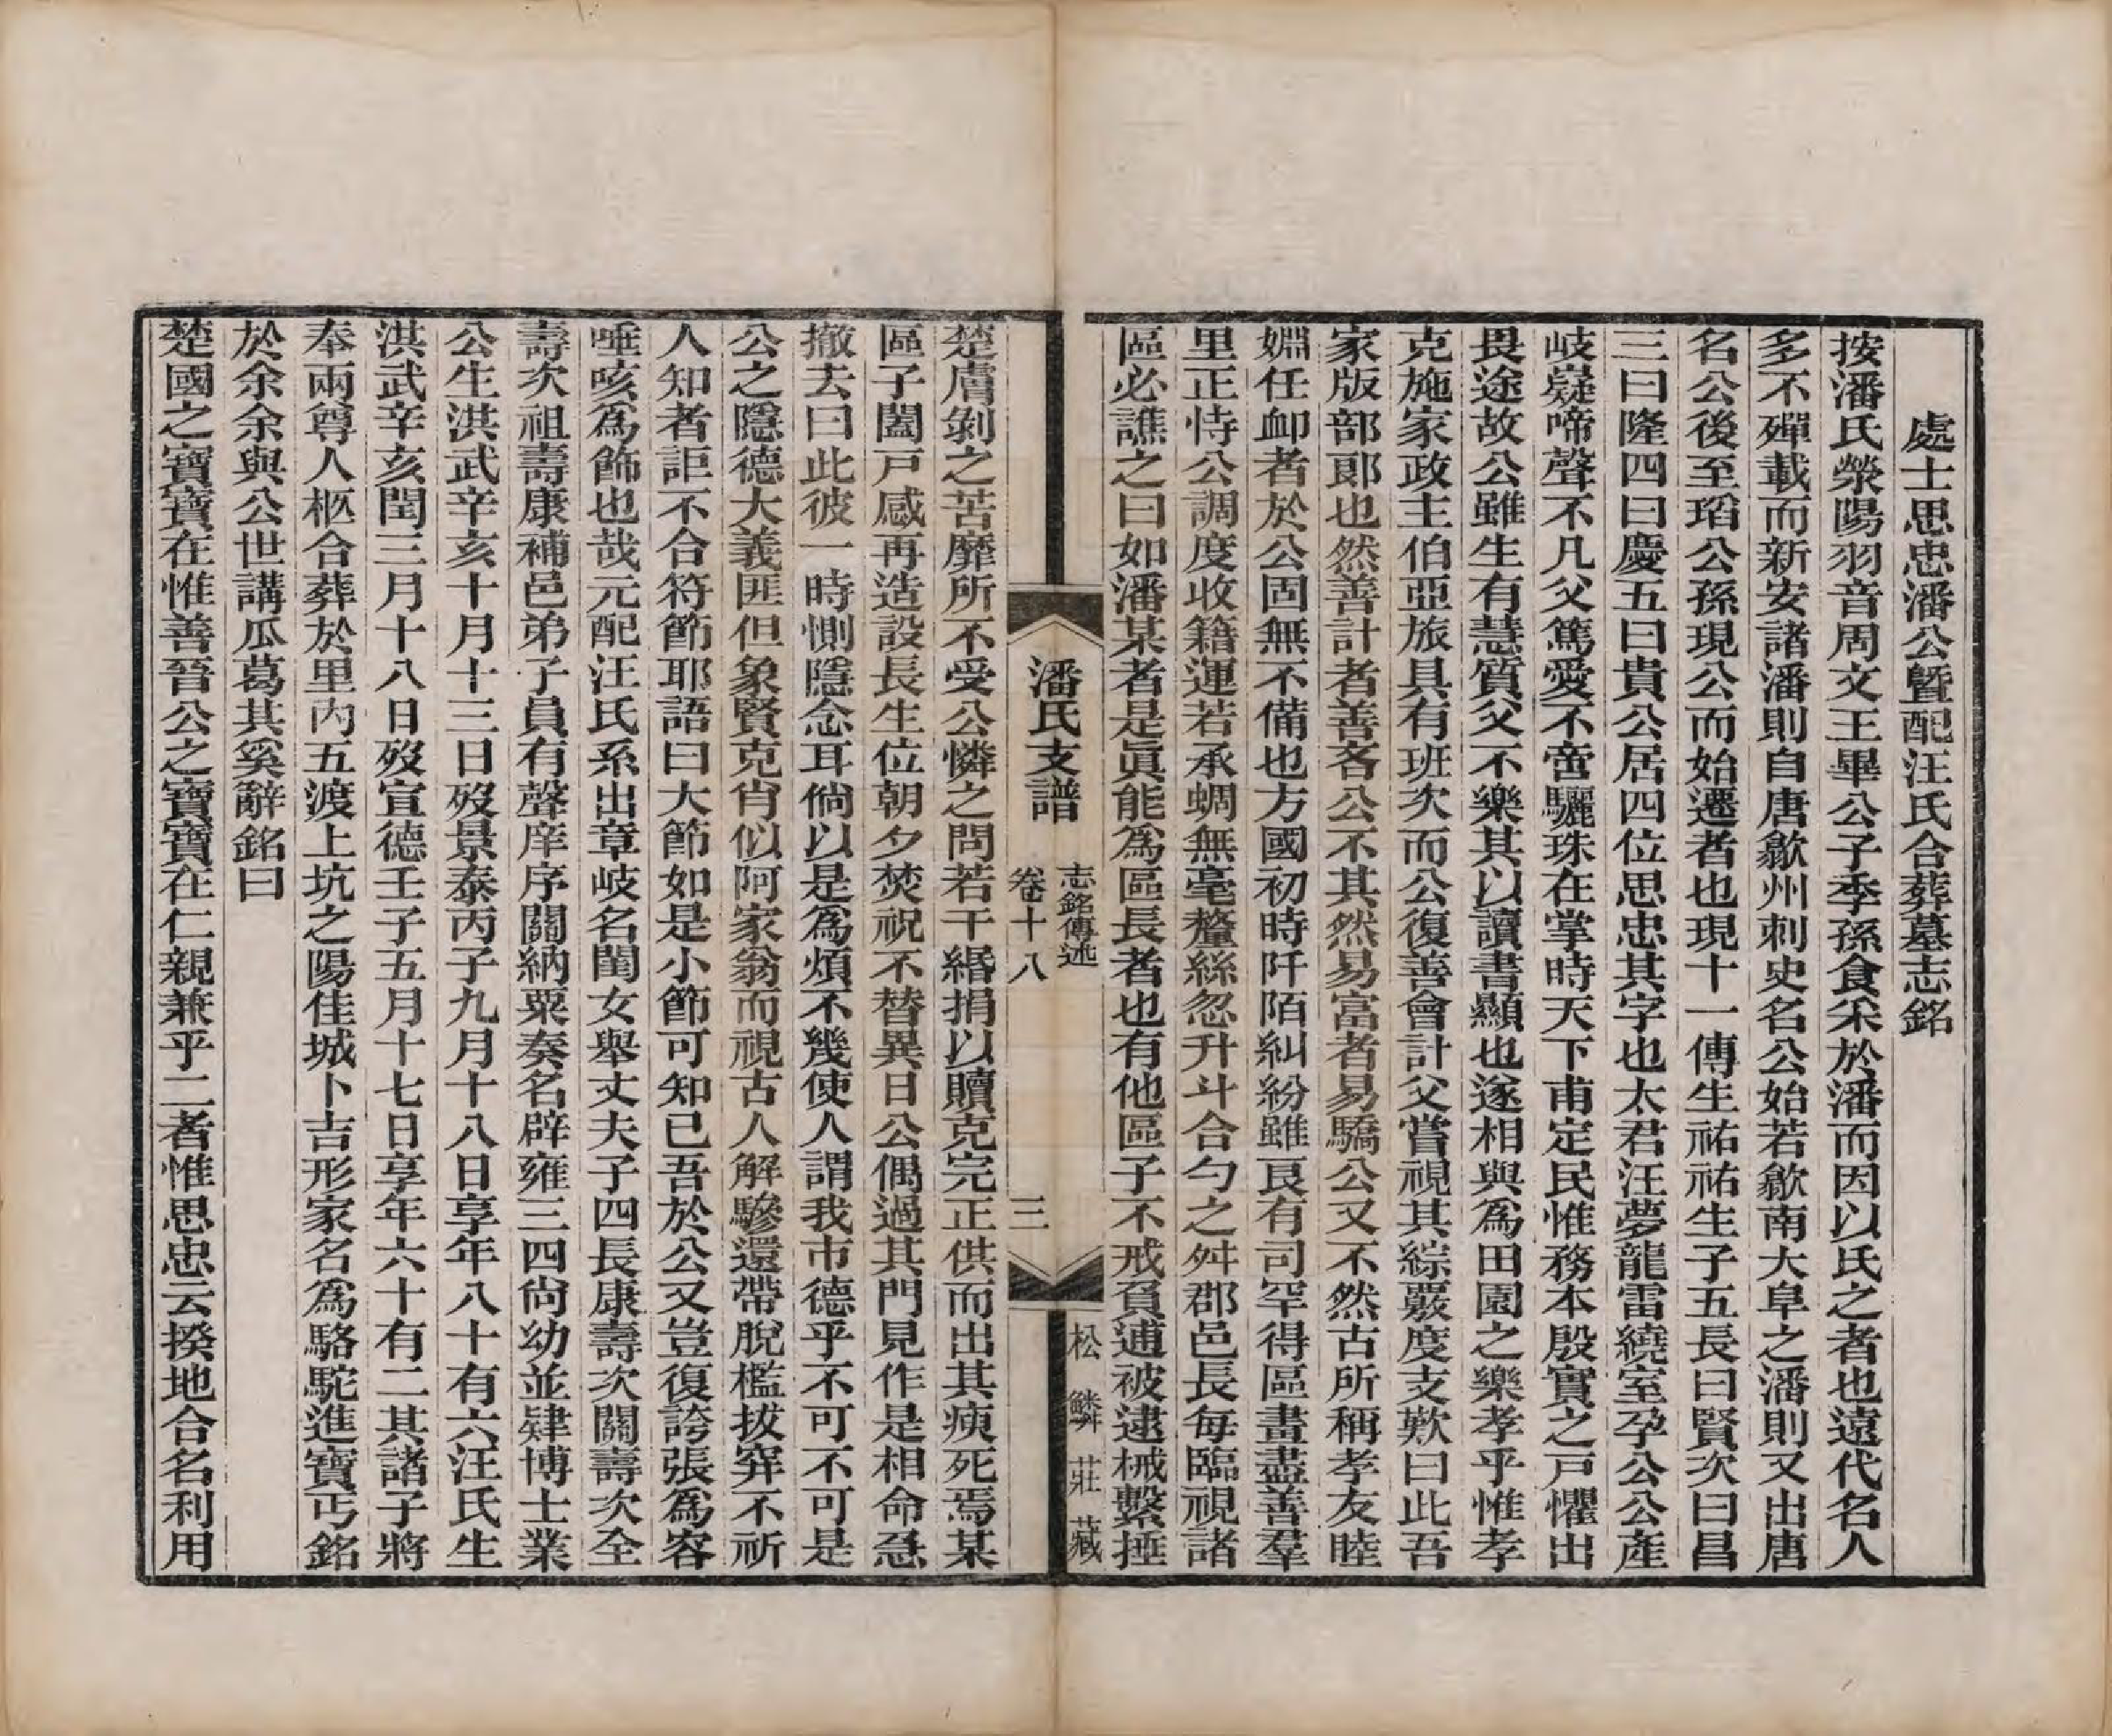 處士思忠潘公暨配汪氏合葬墓志銘
按潘氏滎陽羽音周文王畢公子季孫食采於潘而因以氏之者也遠代名人
多不殫載而新安諸潘則自唐歙州刺史名公始若歙南大阜之潘則又出唐
名公後至瑫公孫現公而始遷者也現十一傳生祐祐生子五長曰賢次曰昌
三曰隆四曰慶五曰貴公居四位思忠其字也太君汪夢龍雷繞室孕公公產
岐嶷啼聲不凡父篤愛不啻驪珠在掌時天下甫定民惟務本殷實之戸懼出
畏途故公雖生有慧質父不樂其以讀書顯也遂相與爲田園之樂孝乎惟孝
克施家政主伯亞旅具有班次而公復善會計父嘗視其綜覈度支歎曰此吾
家版部郎也然善計者善吝公不其然易富者易驕公又不然古所稱孝友睦
婣任卹者於公固無不備也方國初時阡陌糾紛雖良有司罕得區畫盡善羣
里正恃公調度收籍運若承蜩無毫釐絲忽升斗合勺之舛郡邑長每臨視諸
區必譙之曰如潘某者是眞能爲區長者也有他區子不戒負逋被逮械繫捶
潘氏支譜
志銘傳述
卷十八
三
松鱗莊藏
楚膚剝之苦靡所不受公憐之問若干緡捐以贖克完正供而出其瘐死焉某
區子闔戸感再造設長生位朝夕焚祝不替異日公偶過其門見作是相命急
撤去曰此彼一時惻隱念耳倘以是爲煩不幾使人謂我市德乎不可不可是
公之隱德大義匪但象賢克肖似阿家翁而視古人解驂還帶脫檻拔穽不祈
人知者詎不合符節耶語曰大節如是小節可知已吾於公又豈復誇張爲客
唾咳爲飾也哉元配汪氏系出章岐名閨女舉丈夫子四長康壽次關壽次全
壽次祖壽康補邑弟子員有聲庠序關納粟奏名辟雍三四尙幼並肄博士業
公生洪武辛亥十月十三日歿景泰丙子九月十八日享年八十有六汪氏生
洪武辛亥閏三月十八日歿宣德壬子五月十七日享年六十有二其諸子將
奉兩尊人柩合葬於里內五渡上坑之陽佳城卜吉形家名爲駱駝進寶丐銘
於余余與公世講瓜葛其奚辭銘曰
楚國之寶寶在惟善晉公之寶寶在仁親兼乎二者惟思忠云揆地合名利用